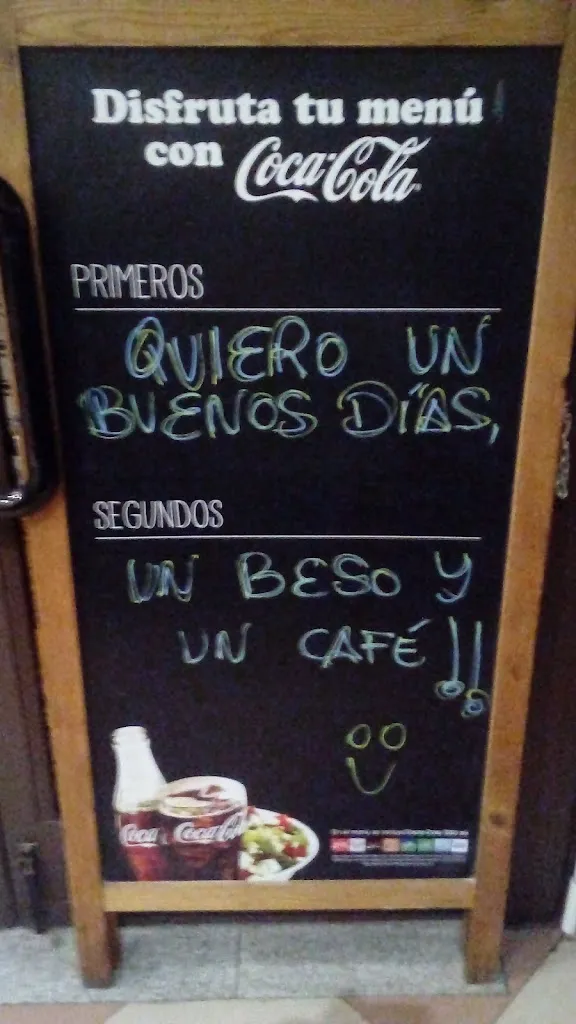 Disfruta tu menú
con Coca-Cola
PRIMEROS
QUIERO UN
BUENOS DÍAS,
SEGUNDOS
UN BESO Y
UN CAFÉ!!
Coca Coca-Cola